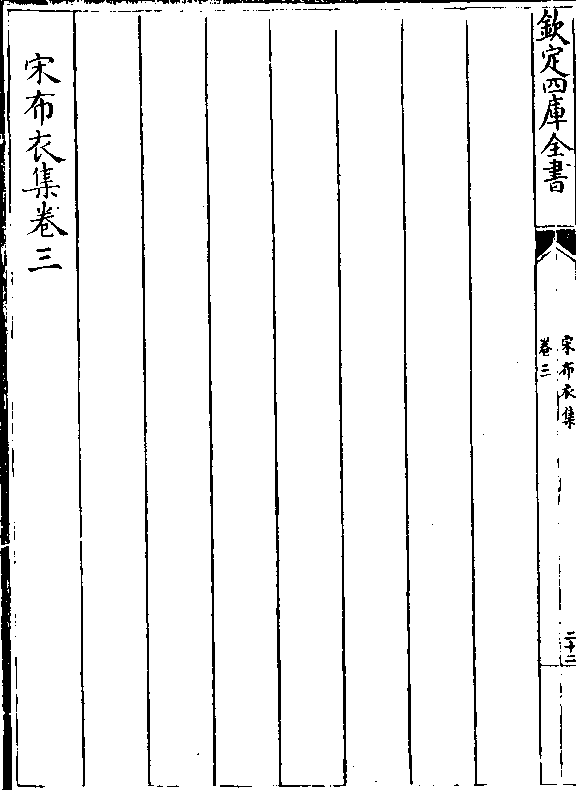 欽定四庫全書
宋布衣集
卷三
二十二
宋布衣集卷三